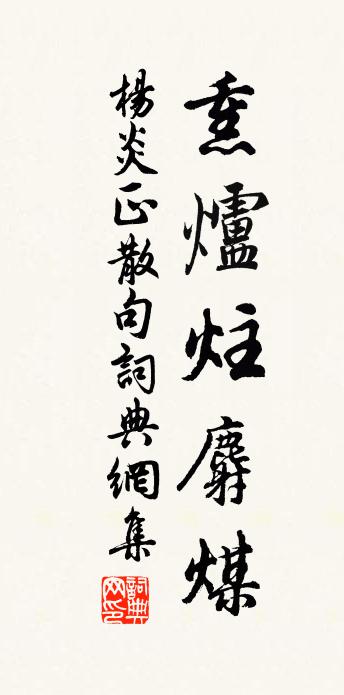 熏爐炷麝煤
楊炎正散句詞典網集
詞典
网印